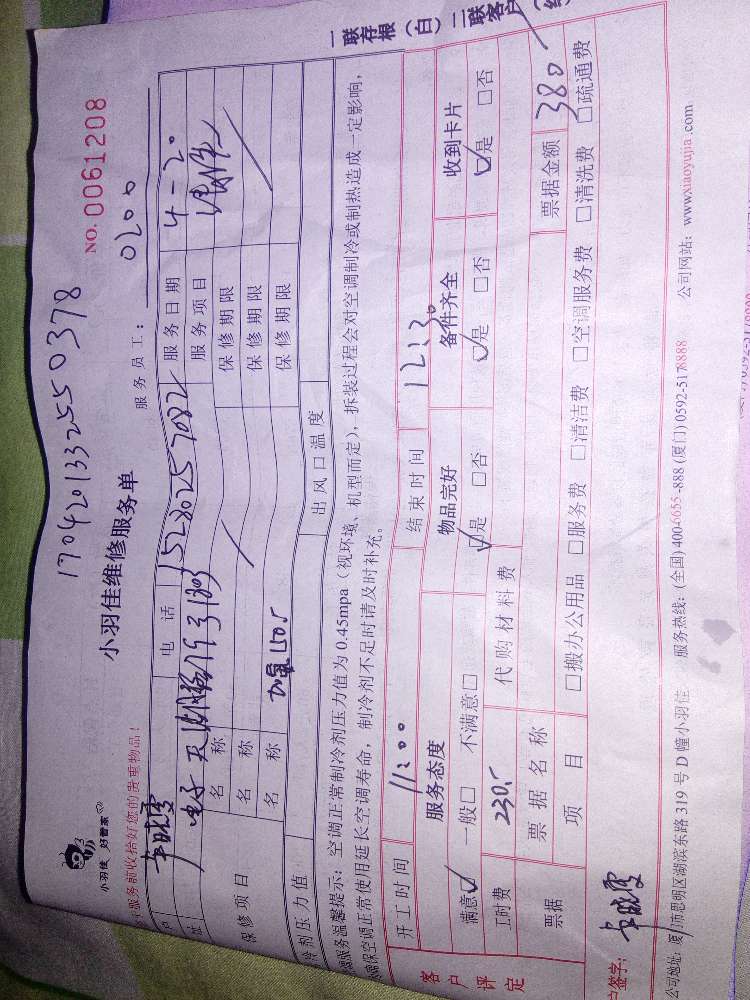 一联存根（白）二联客户
17042013325550378
小羽佳 好管家
小羽佳维修服务单
NO. 0061208
服务前收拾好您的贵重物品！
服务员工： 0200
电话 15280257082 服务日期 4-20
服务项目
名称 保修期限
保修项目 名称 保修期限
名称 加氟150 保修期限
冷剂压力值 出风口温度
服务温馨提示：空调正常制冷剂压力值为0.45mpa（视环境、机型而定），拆装过程会对空调制冷或制热造成一定影响，
确保空调正常使用延长空调寿命，制冷剂不足时请及时补充。
开工时间 11:00 结束时间 12:30
客户评定
服务态度 物品完好 备件齐全 收到卡片
满意☑ 一般□ 不满意□ ☑是 □否 ☑是 □否 ☑是 □否
工时费 230 代购材料费
票据 票据名称 票据金额 380
项目 □搬办公用品 □服务费 □清洁费 □空调服务费 □清洗费 □疏通费
户签字：
公司地址：厦门市思明区湖滨东路319号D幢小羽佳 服务热线：(全国) 4004655-888 (厦门) 0592-5178888 公司网站：www.xiaoyujia.com